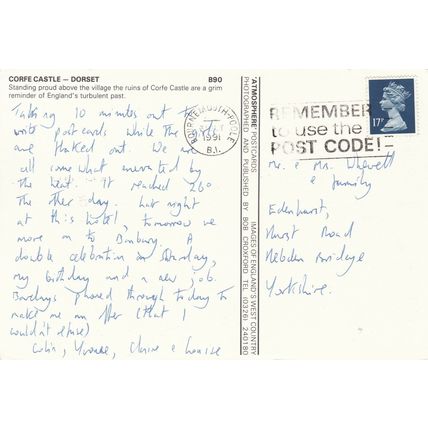 CORFE CASTLE — DORSET B90
Standing proud above the village the ruins of Corfe Castle are a grim
reminder of England's turbulent past.
Taking 10 minutes out to
write postcards while the
are flaked out. We are
all somewhat enervated by
the heat. It reached 26°
the other day. Last night
at this hotel, tomorrow we
move on to Banbury. A
double celebration on Saturday,
my birthday and a new job.
Barclays phoned through today to
make me an offer (that I
wouldn't refuse)
Colin, Yvonne, Claire & Louise
'ATMOSPHERE' POSTCARDS IMAGES OF ENGLAND'S WEST COUNTRY
PHOTOGRAPHED AND PUBLISHED BY BOB CROXFORD TEL (0326) 240180
BOURNEMOUTH-POOLE
1991
B.I.
REMEMBER
to use the
POST CODE!
17P
Mr. & Mrs.
& family
Edenhurst,
Hurst Road
Hebden Bridge
Yorkshire.